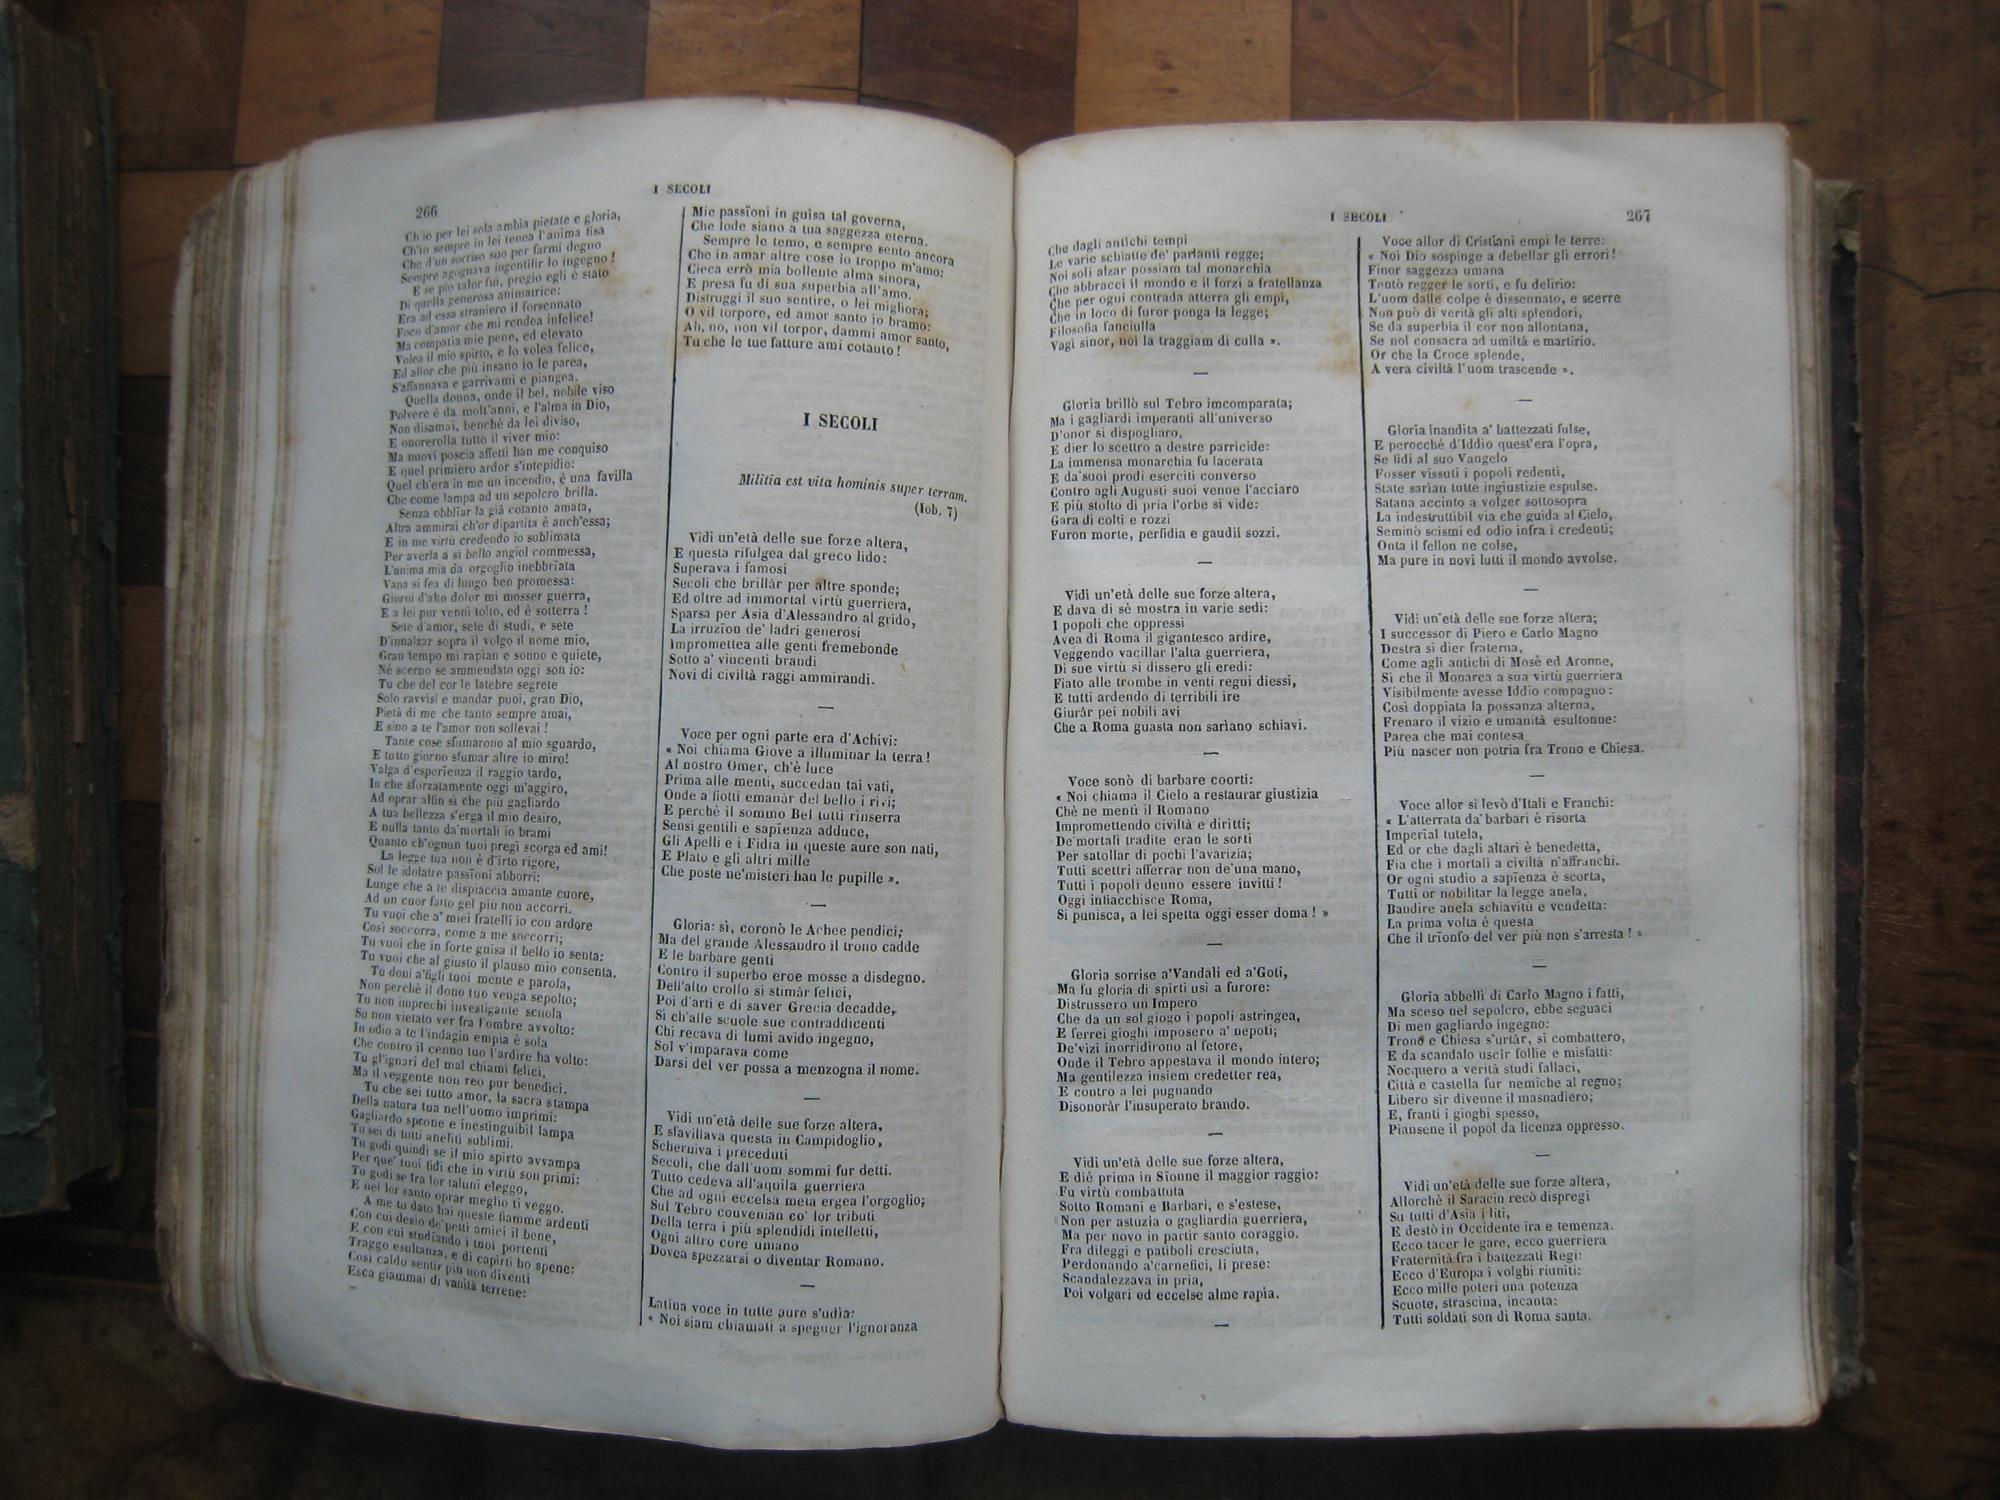 266
I SECOLI
Ch'io per lei sola ambìa pietate e gloria,
Ch'io sempre in lei tenea l'anima fisa
Che d'un sorriso suo per farmi degno
Sempre agognava ingentilir lo ingegno!
E se pio talor fui, pregio egli è stato
Di quella generosa animatrice:
Era ad essa straniero il forsennato
Foco d'amor che mi rendea infelice!
Ma compatìa mie pene, ed elevato
Volea il mio spirto, e lo volea felice,
Ed allor che più insano io le parea,
S'affannava e garrivami e piangea.
Quella donna, onde il bel, nobile viso
Polvere è da molt'anni, e l'alma in Dio,
Non disamai, benchè da lei diviso,
E onorerolla tutto il viver mio:
Ma nuovi poscia affetti han me conquiso
E quel primiero ardor s'intepidìo:
Quel ch'era in me un incendio, è una favilla
Che come lampa ad un sepolcro brilla.
Senza obblïar la già cotanto amata,
Altra ammirai ch'or dipartita è anch'essa;
E in me virtù credendo io sublimata
Per averla a sì bello angiol commessa,
L'anima mia da orgoglio inebbriata
Vana si fea di lungo ben promessa:
Giorni d'alto dolor mi mosser guerra,
E a lei pur venni tolto, ed è sotterra!
Sete d'amor, sete di studi, e sete
D'innalzar sopra il volgo il nome mio,
Gran tempo mi rapìan e sonno e quiete,
Nè scerno se ammendato oggi son io:
Tu che del cor le latebre segrete
Solo ravvisi e mandar puoi, gran Dio,
Pietà di me che tanto sempre amai,
E sino a te l'amor non sollevai!
Tante cose sfumarono al mio sguardo,
E tutto giorno sfumar altre io miro!
Valga d'esperïenza il raggio tardo,
In che sforzatamente oggi m'aggiro,
Ad oprar alfin sì che più gagliardo
A tua bellezza s'erga il mio desiro,
E nulla tanto da' mortali io brami
Quanto ch'ognun tuoi pregi scorga ed ami!
La legge tua non è d'irto rigore,
Sol le idolatre passïoni abborri:
Lunge che a te dispiaccia amante cuore,
Ad un cuor fatto gel più non accorri.
Tu vuoi che a' miei fratelli io con ardore
Così soccorra, come a me soccorri;
Tu vuoi che in forte guisa il bello io senta:
Tu vuoi che al giusto il plauso mio consenta.
Tu doni a' figli tuoi mente e parola,
Non perchè il dono tuo venga sepolto;
Tu non imprechi investigante scuola
Su non vietato ver fra l'ombre avvolto:
In odio a te l'indagin empia è sola
Che contro il cenno tuo l'ardire ha volto:
Tu gl'ignari del mal chiami felici,
Ma il veggente non reo pur benedici.
Tu che sei tutto amor, la sacra stampa
Della natura tua nell'uomo imprimi:
Gagliardo sprone e inestinguibil lampa
Tu sei di tutti aneliti sublimi.
Tu godi quindi se il mio spirto avvampa
Per que' tuoi fidi che in virtù son primi:
Tu godi se fra lor taluni eleggo,
E nel lor santo oprar meglio ti veggo.
A me tu dato hai queste fiamme ardenti
Con cui desio de' petti amici il bene,
E con cui studiando i tuoi portenti
Traggo esultanza, e di capirti ho spene:
Così caldo sentir più non diventi
Esca giammai di vanità terrene:
Mie passïoni in guisa tal governa,
Che lode siano a tua saggezza eterna.
Sempre le temo, e sempre sento ancora
Che in amar altre cose io troppo m'amo:
Cieca errò mia bollente alma sinora,
E presa fu di sua superbia all'amo.
Distruggi il suo sentire, o lei migliora;
O vil torpore, ed amor santo io bramo:
Ah, no, non vil torpor, dammi amor santo,
Tu che le tue fatture ami cotanto!
I SECOLI
Militia est vita hominis super terram.
(Iob. 7)
Vidi un'età delle sue forze altera,
E questa rifulgea dal greco lido:
Superava i famosi
Secoli che brillàr per altre sponde;
Ed oltre ad immortal virtù guerriera,
Sparsa per Asia d'Alessandro al grido,
La irruzïon de' ladri generosi
Impromettea alle genti fremebonde
Sotto a' vincenti brandi
Novi di civiltà raggi ammirandi.
—
Voce per ogni parte era d'Achivi:
« Noi chiama Giove a illuminar la terra!
Al nostro Omer, ch'è luce
Prima alle menti, succedan tai vati,
Onde a fiotti emanàr del bello i rivi;
E perchè il sommo Bel tutti rinserra
Sensi gentili e sapïenza adduce,
Gli Apelli e i Fidia in queste aure son nati,
E Plato e gli altri mille
Che poste ne' misteri han le pupille ».
—
Gloria: sì, coronò le Achee pendici;
Ma del grande Alessandro il trono cadde
E le barbare genti
Contro il superbo eroe mosse a disdegno.
Dell'alto crollo si stimàr felici,
Poi d'arti e di saver Grecia decadde,
Sì ch'alle scuole sue contraddicenti
Chi recava di lumi avido ingegno,
Sol v'imparava come
Darsi del ver possa a menzogna il nome.
—
Vidi un'età delle sue forze altera,
E sfavillava questa in Campidoglio,
Scherniva i preceduti
Secoli, che dall'uom sommi fur detti.
Tutto cedeva all'aquila guerriera
Che ad ogni eccelsa meta ergea l'orgoglio;
Sul Tebro convenìan co' lor tributi
Della terra i più splendidi intelletti,
Ogni altro core umano
Dovea spezzarsi o diventar Romano.
—
Latina voce in tutte aure s'udìa:
« Noi siam chiamati a spegner l'ignoranza
I SECOLI
267
Che dagli antichi tempi
Le varie schiatte de' parlanti regge;
Noi soli alzar possiam tal monarchia
Che abbracci il mondo e il forzi a fratellanza
Che per ogni contrada atterra gli empi,
Che in loco di furor ponga la legge;
Filosofia fanciulla
Vagì sinor, noi la traggiam di culla ».
—
Gloria brillò sul Tebro imcomparata;
Ma i gagliardi imperanti all'universo
D'onor si dispogliaro,
E dier lo scettro a destre parricide:
La immensa monarchia fu lacerata
E da' suoi prodi eserciti converso
Contro agli Augusti suoi venne l'acciaro
E più stolto di pria l'orbe si vide:
Gara di colti e rozzi
Furon morte, perfidia e gaudii sozzi.
—
Vidi un'età delle sue forze altera,
E dava di sè mostra in varie sedi:
I popoli che oppressi
Avea di Roma il gigantesco ardire,
Veggendo vacillar l'alta guerriera,
Di sue virtù si dissero gli eredi:
Fiato alle trombe in venti regni diessi,
E tutti ardendo di terribili ire
Giuràr pei nobili avi
Che a Roma guasta non sarìano schiavi.
—
Voce sonò di barbare coorti:
« Noi chiama il Cielo a restaurar giustizia
Chè ne mentì il Romano
Impromettendo civiltà e diritti;
De' mortali tradite eran le sorti
Per satollar di pochi l'avarizia;
Tutti scettri afferrar non de' una mano,
Tutti i popoli denno essere invitti!
Oggi infiacchisce Roma,
Si punisca, a lei spetta oggi esser doma! »
—
Gloria sorrise a' Vandali ed a' Goti,
Ma fu gloria di spirti usi a furore:
Distrussero un Impero
Che da un sol giogo i popoli astringea,
E ferrei gioghi imposero a' nepoti;
De' vizi inorridirono al fetore,
Onde il Tebro appestava il mondo intero;
Ma gentilezza insiem credetter rea,
E contro a lei pugnando
Disonoràr l'insuperato brando.
—
Vidi un'età delle sue forze altera,
E diè prima in Sïonne il maggior raggio:
Fu virtù combattuta
Sotto Romani e Barbari, e s'estese,
Non per astuzia o gagliardia guerriera,
Ma per novo in partir santo coraggio.
Fra dileggi e patiboli cresciuta,
Perdonando a' carnefici, li prese:
Scandalezzava in pria,
Poi volgari ed eccelse alme rapìa.
—
Voce allor di Cristïani empì le terre:
« Noi Dio sospinge a debellar gli errori!
Finor saggezza umana
Tentò regger le sorti, e fu delirio:
L'uom dalle colpe è dissennato, e scerre
Non può di verità gli alti splendori,
Se da superbia il cor non allontana,
Se nol consacra ad umiltà e martirio.
Or che la Croce splende,
A vera civiltà l'uom trascende ».
—
Gloria inaudita a' battezzati fulse,
E perocchè d'Iddio quest'era l'opra,
Se fidi al suo Vangelo
Fosser vissuti i popoli redenti,
State sarìan tutte ingiustizie espulse.
Satana accinto a volger sottosopra
La indestruttibil via che guida al Cielo,
Seminò scismi ed odio infra i credenti;
Onta il fellon ne colse,
Ma pure in novi lutti il mondo avvolse.
—
Vidi un'età delle sue forze altera;
I successor di Piero e Carlo Magno
Destra si dier fraterna,
Come agli antichi dì Mosè ed Aronne,
Sì che il Monarca a sua virtù guerriera
Visibilmente avesse Iddio compagno:
Così doppiata la possanza alterna,
Frenaro il vizio e umanità esultonne:
Parea che mai contesa
Più nascer non potria fra Trono e Chiesa.
—
Voce allor si levò d'Itali e Franchi:
« L'atterrata da' barbari è risorta
Imperïal tutela,
Ed or che dagli altari è benedetta,
Fia che i mortali a civiltà n'affranchi.
Or ogni studio a sapïenza è scorta,
Tutti or nobilitar la legge anela,
Bandire anela schiavitù e vendetta:
La prima volta è questa
Che il trïonfo del ver più non s'arresta! »
—
Gloria abbellì di Carlo Magno i fatti,
Ma sceso nel sepolcro, ebbe seguaci
Di men gagliardo ingegno:
Trono e Chiesa s'urtàr, si combattero,
E da scandalo uscir follie e misfatti:
Nocquero a verità studi fallaci,
Città e castella fur nemiche al regno;
Libero sir divenne il masnadiero;
E, franti i gioghi spesso,
Piansene il popol da licenza oppresso.
—
Vidi un'età delle sue forze altera,
Allorchè il Saracin recò dispregi
Su tutti d'Asia i liti,
E destò in Occidente ira e temenza.
Ecco tacer le gare, ecco guerriera
Fraternità fra i battezzati Regi:
Ecco d'Europa i volghi riuniti:
Ecco mille poteri una potenza
Scuote, strascina, incanta:
Tutti soldati son di Roma santa.